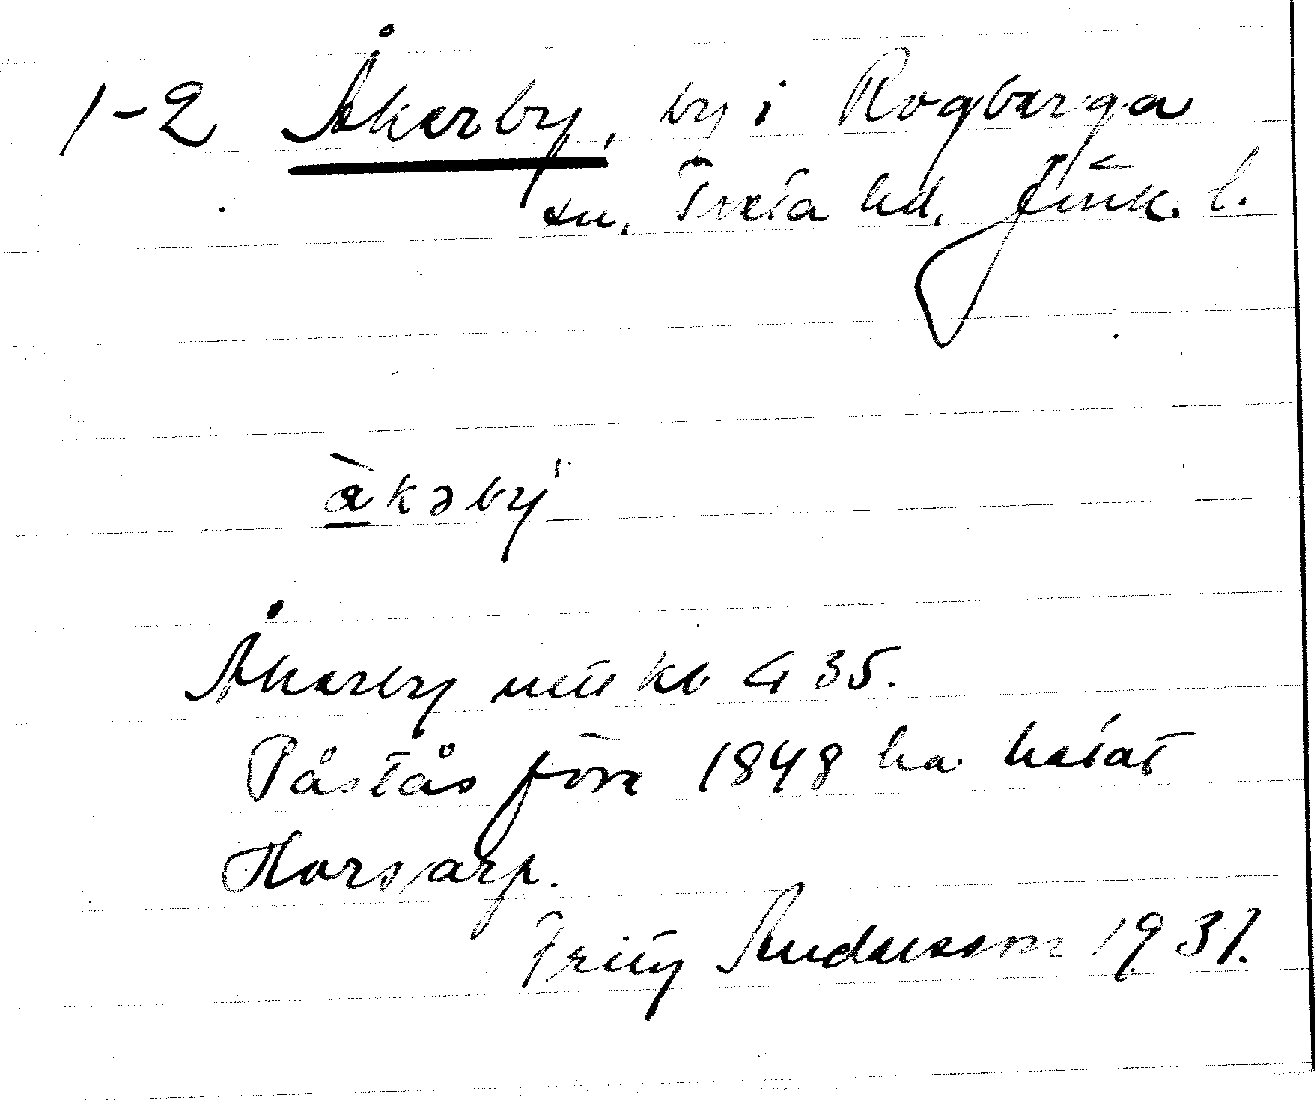 1-2 Åkerby, by i Rogberga
sn. Tveta hd. Jönk. l.
àkəby
Åkerby GK 35.
Påstås före 1848 ha hetat
Horsarp.
Andersson 1931.